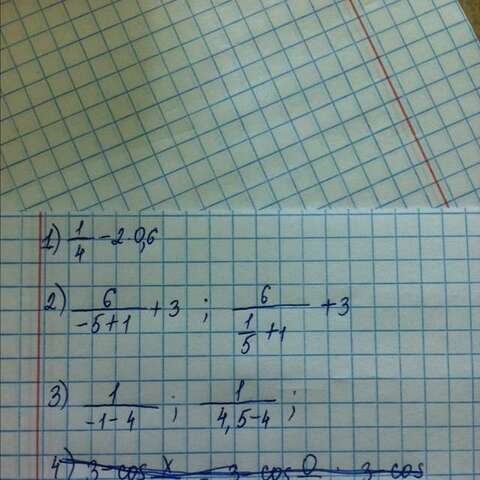 1) 1/4 - 2·0,6
2) 6/(-5+1) + 3 ; 6/(1/5 + 1) + 3
3) 1/(-1-4) ; 1/(4,5-4) ;
4) 3-cos x 3-cos 0 3-cos